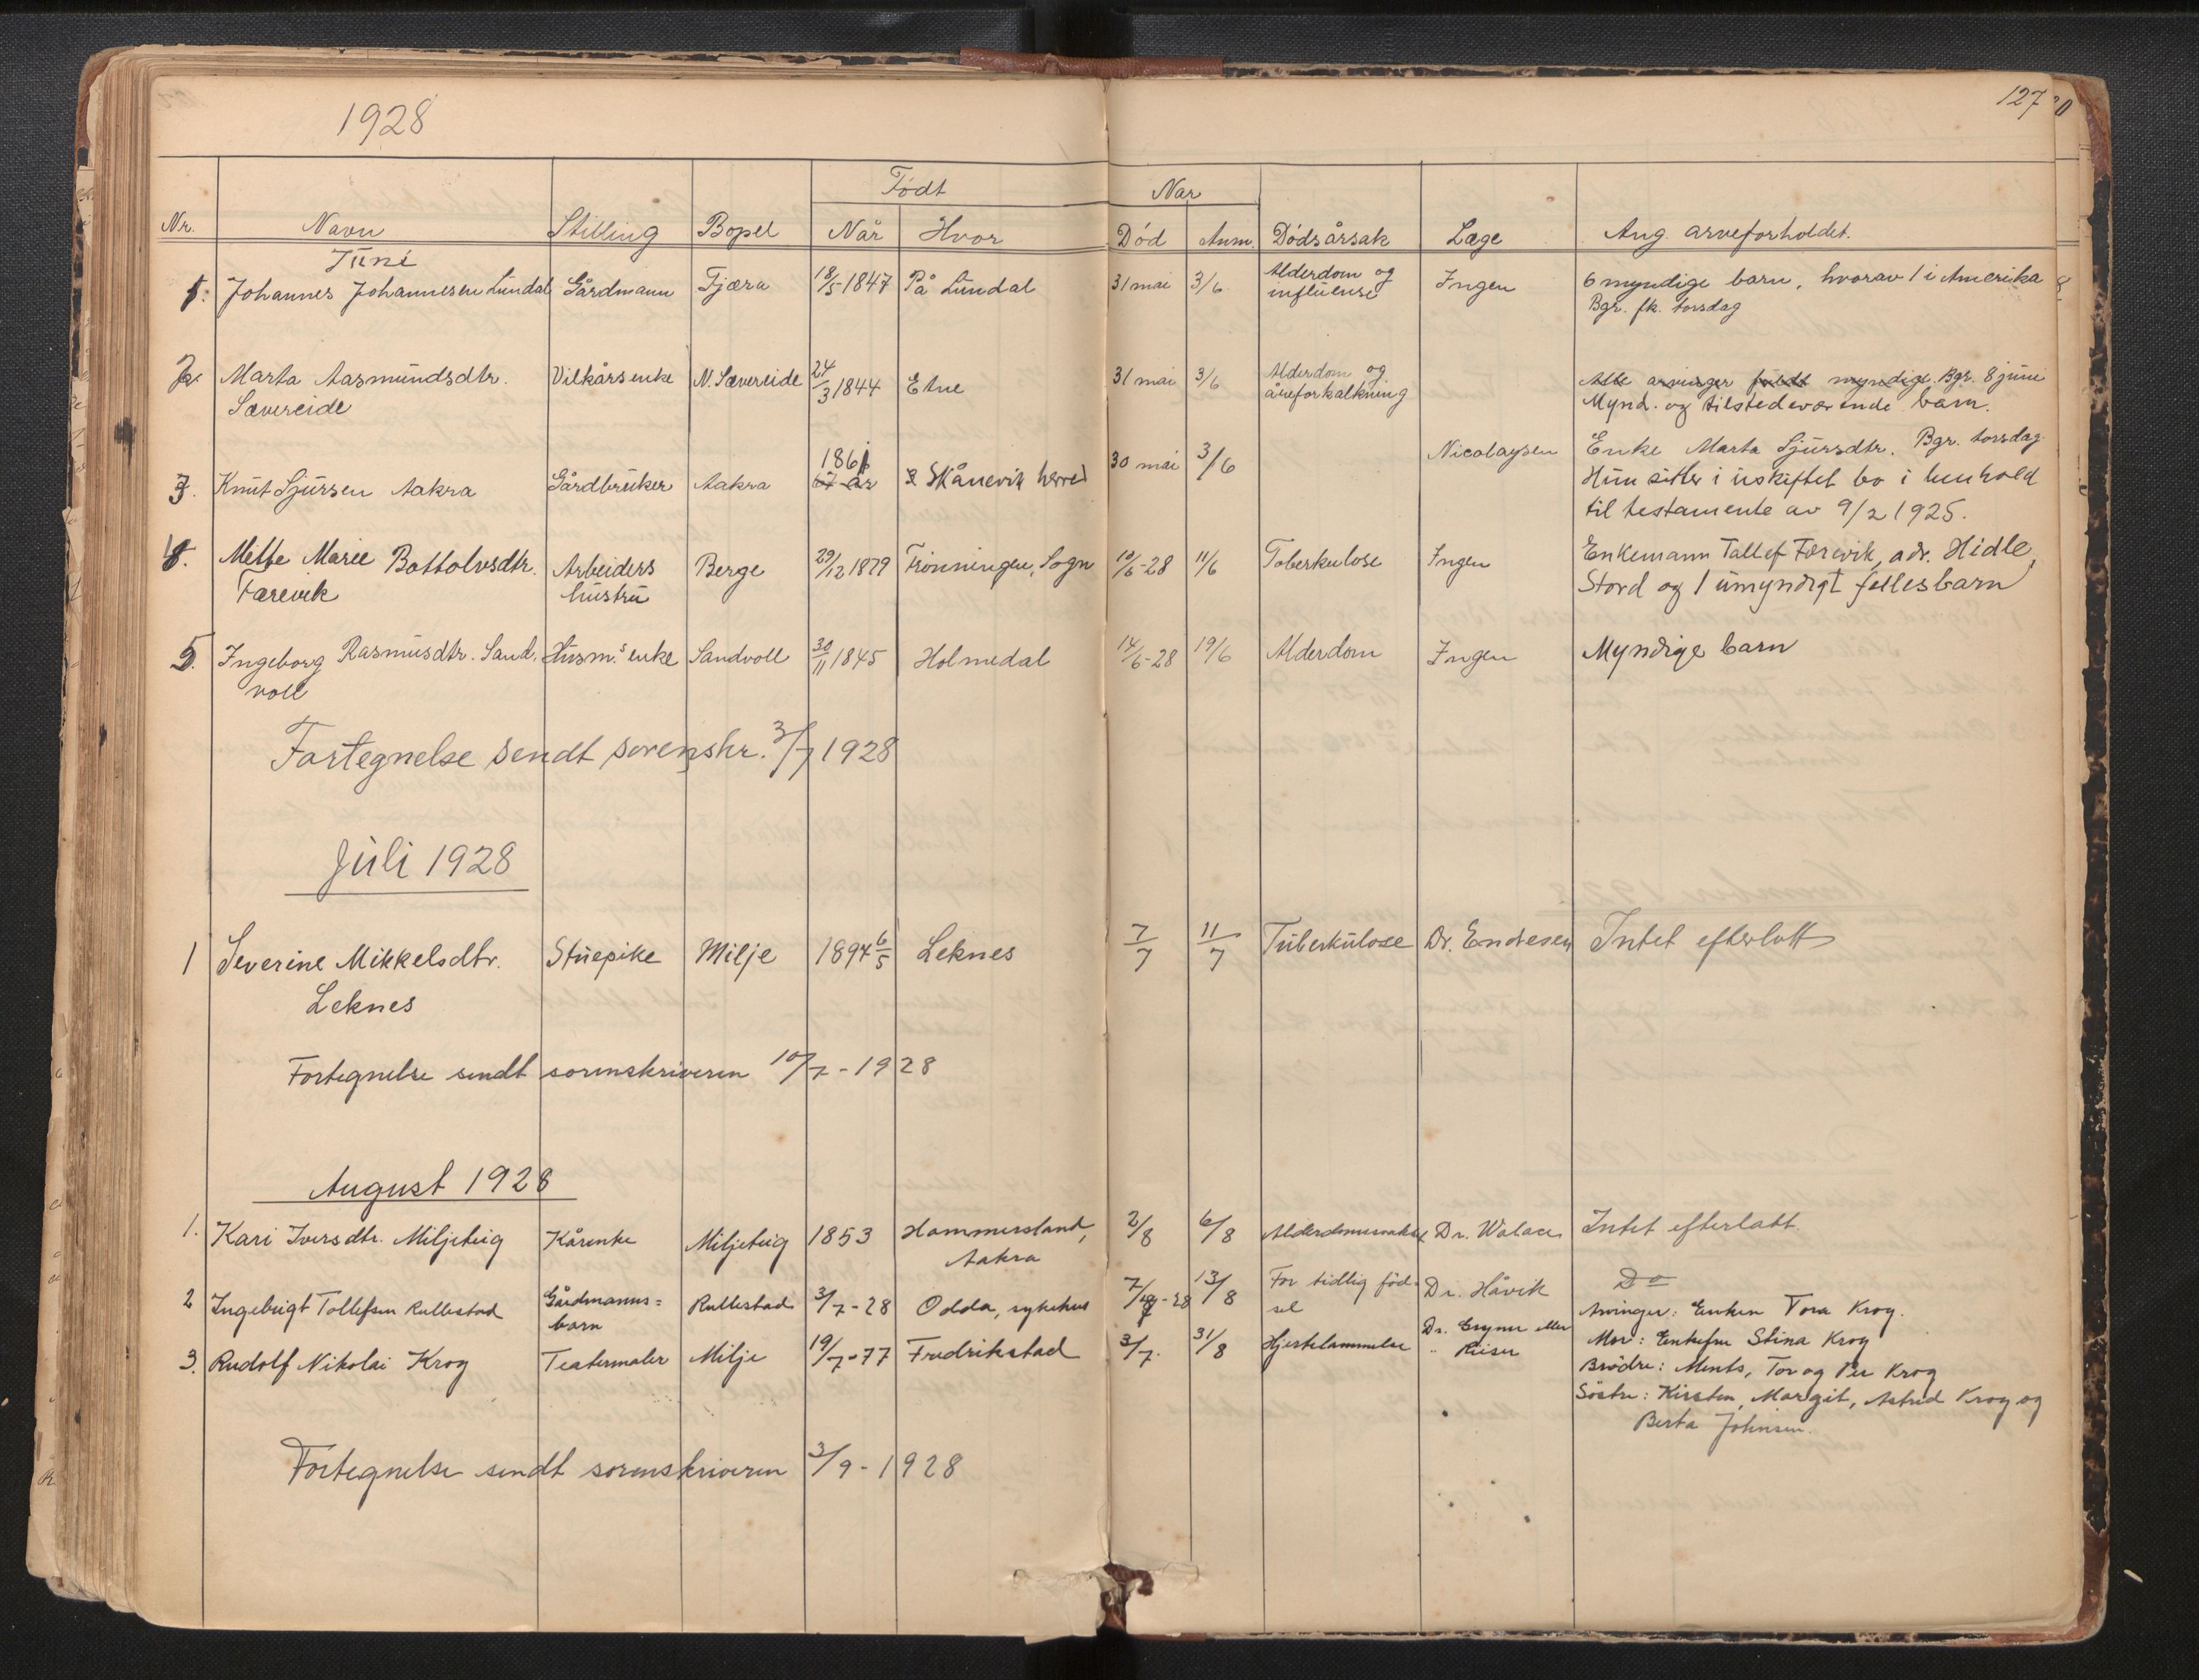 1928
127
Født
Nar
Nr. Navn Stilling Bopel Når Hvor Død Anm. Dødsårsak Læge Ang. arveforholdet.
Juni
1. Johannes Johannesen Lundal Gårdmann Fjæra 18/5 1847 På Lundal 31 mai 3/6 Alderdom og Ingen 6 myndige barn, hvorav 1 i Amerika
influense Bgr. fk. torsdag
2. Marta Aasmundsdtr. Vilkårsenke N. Sævereide 24/3 1844 Etne 31 mai 3/6 Alderdom og Alle arvinger fuldt myndige. Bgr. 8 juni
Sævereide åreforkalkning Mynd. og tilstedeværende barn.
3. Knut Sjursen Aakra Gårdbruker Aakra 1861 67 år Skånevik herred 30 mai 3/6 Nicolaysen Enke Marta Sjursdtr. Bgr. torsdag
Hun sitter i uskiftet bo i henhold
til testamente av 9/2 1925.
4. Mette Marie Bottolvsdtr. Arbeiders Berge 29/12 1879 Frønningen, Sogn 10/6-28 11/6 Toberkulose Ingen Enkemann Tallef Færevik, adr. Hidle,
Færevik hustru Stord og 1 umyndigt fellesbarn
5. Ingeborg Rasmusdtr. Sand. Husm.s enke Sandvoll 30/11 1845 Holmedal 14/6-28 19/6 Alderdom Ingen Myndige barn
voll
Fortegnelse sendt sorenskr. 3/7 1928
Juli 1928
1 Severine Mikkelsdtr. Stuepike Milje 1894 6/5 Leknes 7/7 11/7 Tuberkulose Dr. Endresen Intet efterlatt
Leknes
Fortegnelse sendt sorenskriveren 10/7 - 1928
August 1928
1. Kari Iversdtr. Miljeteig Kårenke Miljeteig 1853 Hammersland, 2/8 6/8 Dr. Walace Intet efterlatt.
Aakra
2 Ingebrigt Tollefsen Rullestad Gårdmanns= Rullestad 3/7-28 Odda, sykehus 7/7-28 13/8 For tidlig fød- Dr. Håvik Do
barn sel Arvinger: Enken Tora Krog.
3. Rudolf Nikolai Krog Teatermaler Milje 19/7-77 Fredrikstad 3/7. 31/8 Hjertelammelse Dr. eller Mor: Enkefru Stina Krog
" Riiser Brødre: Ments, Tor og Per Krog
Søstre: Kirsten, Margit, Astrid Krog og
Berta Johnsen.
Fortegnelse sendt sorenskriveren 3/9 - 1928